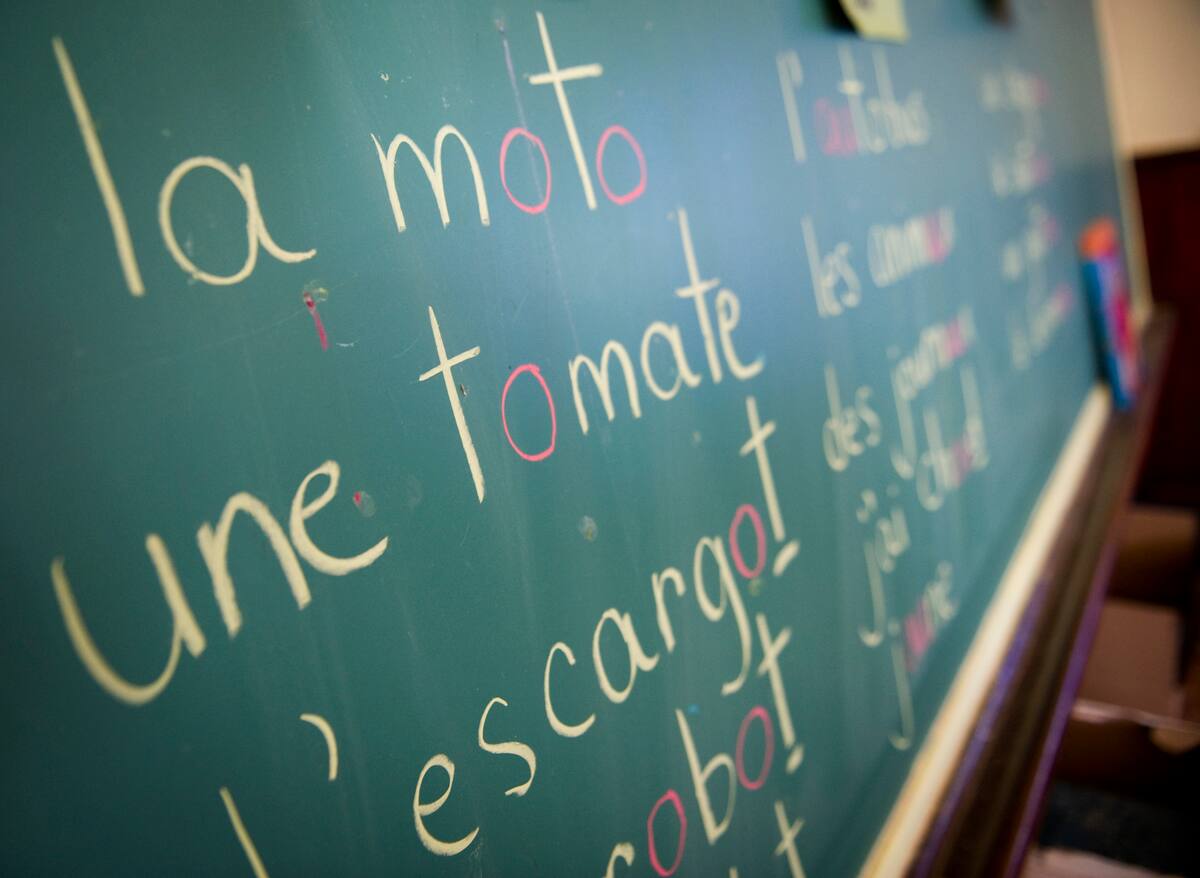 la moto
une tomate
l'escargot
robot
l'autobus
les animaux
des journaux
j'ai chaud
jaune